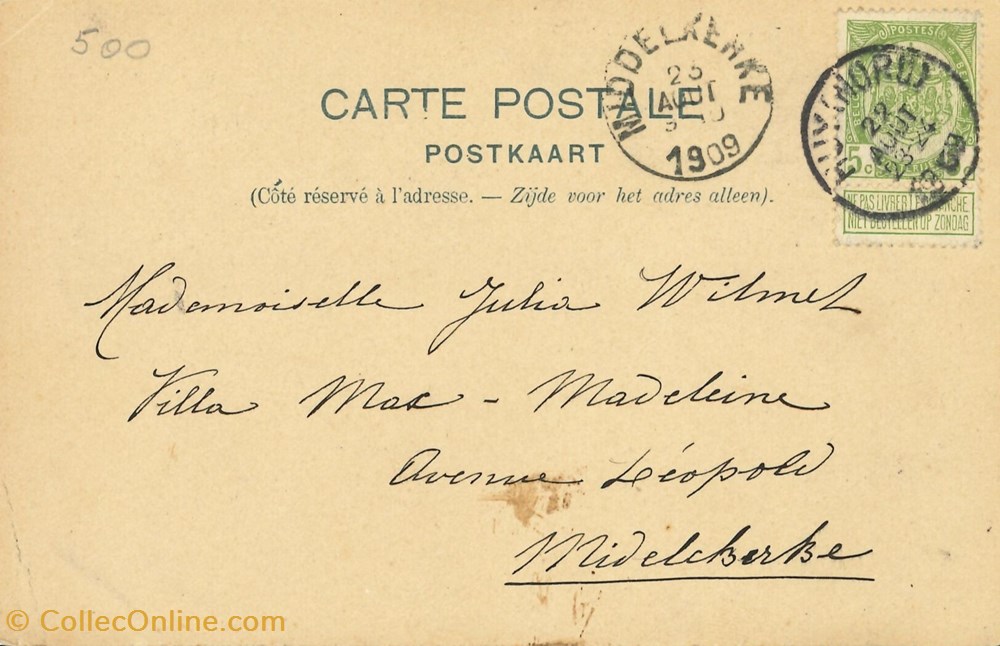 500
CARTE POSTALE
POSTKAART
(Côté réservé à l'adresse. — Zijde voor het adres alleen).
MIDDELKERKE
23
AOUT
1909
POSTES
5 C
22
AOUT
NE PAS LIVRER LE DIMANCHE
NIET BESTELLEN OP ZONDAG
Mademoiselle Julia Wilmet
Villa Max - Madeleine
Avenue Léopold
Midelckerke
© CollecOnline.com